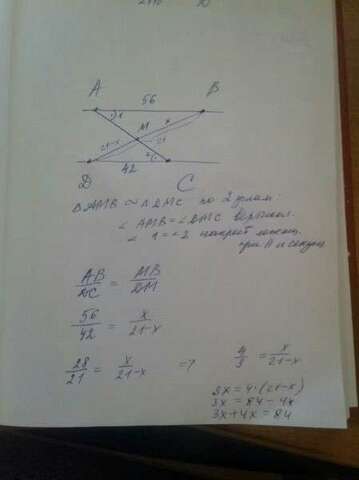 A 56 B
1
M x
21-x 21
2
D 42 C
Δ AMB ∾ Δ DMC по 2 углам:
∠ AMB = ∠ DMC вертикал.
∠ 1 = ∠ 2 накрест лежащ.
при || и секущ.
AB/DC = MB/DM
56/42 = x/21-x
28/21 = x/21-x => 4/3 = x/21-x
3x = 4·(21-x)
3x = 84 - 4x
3x + 4x = 84